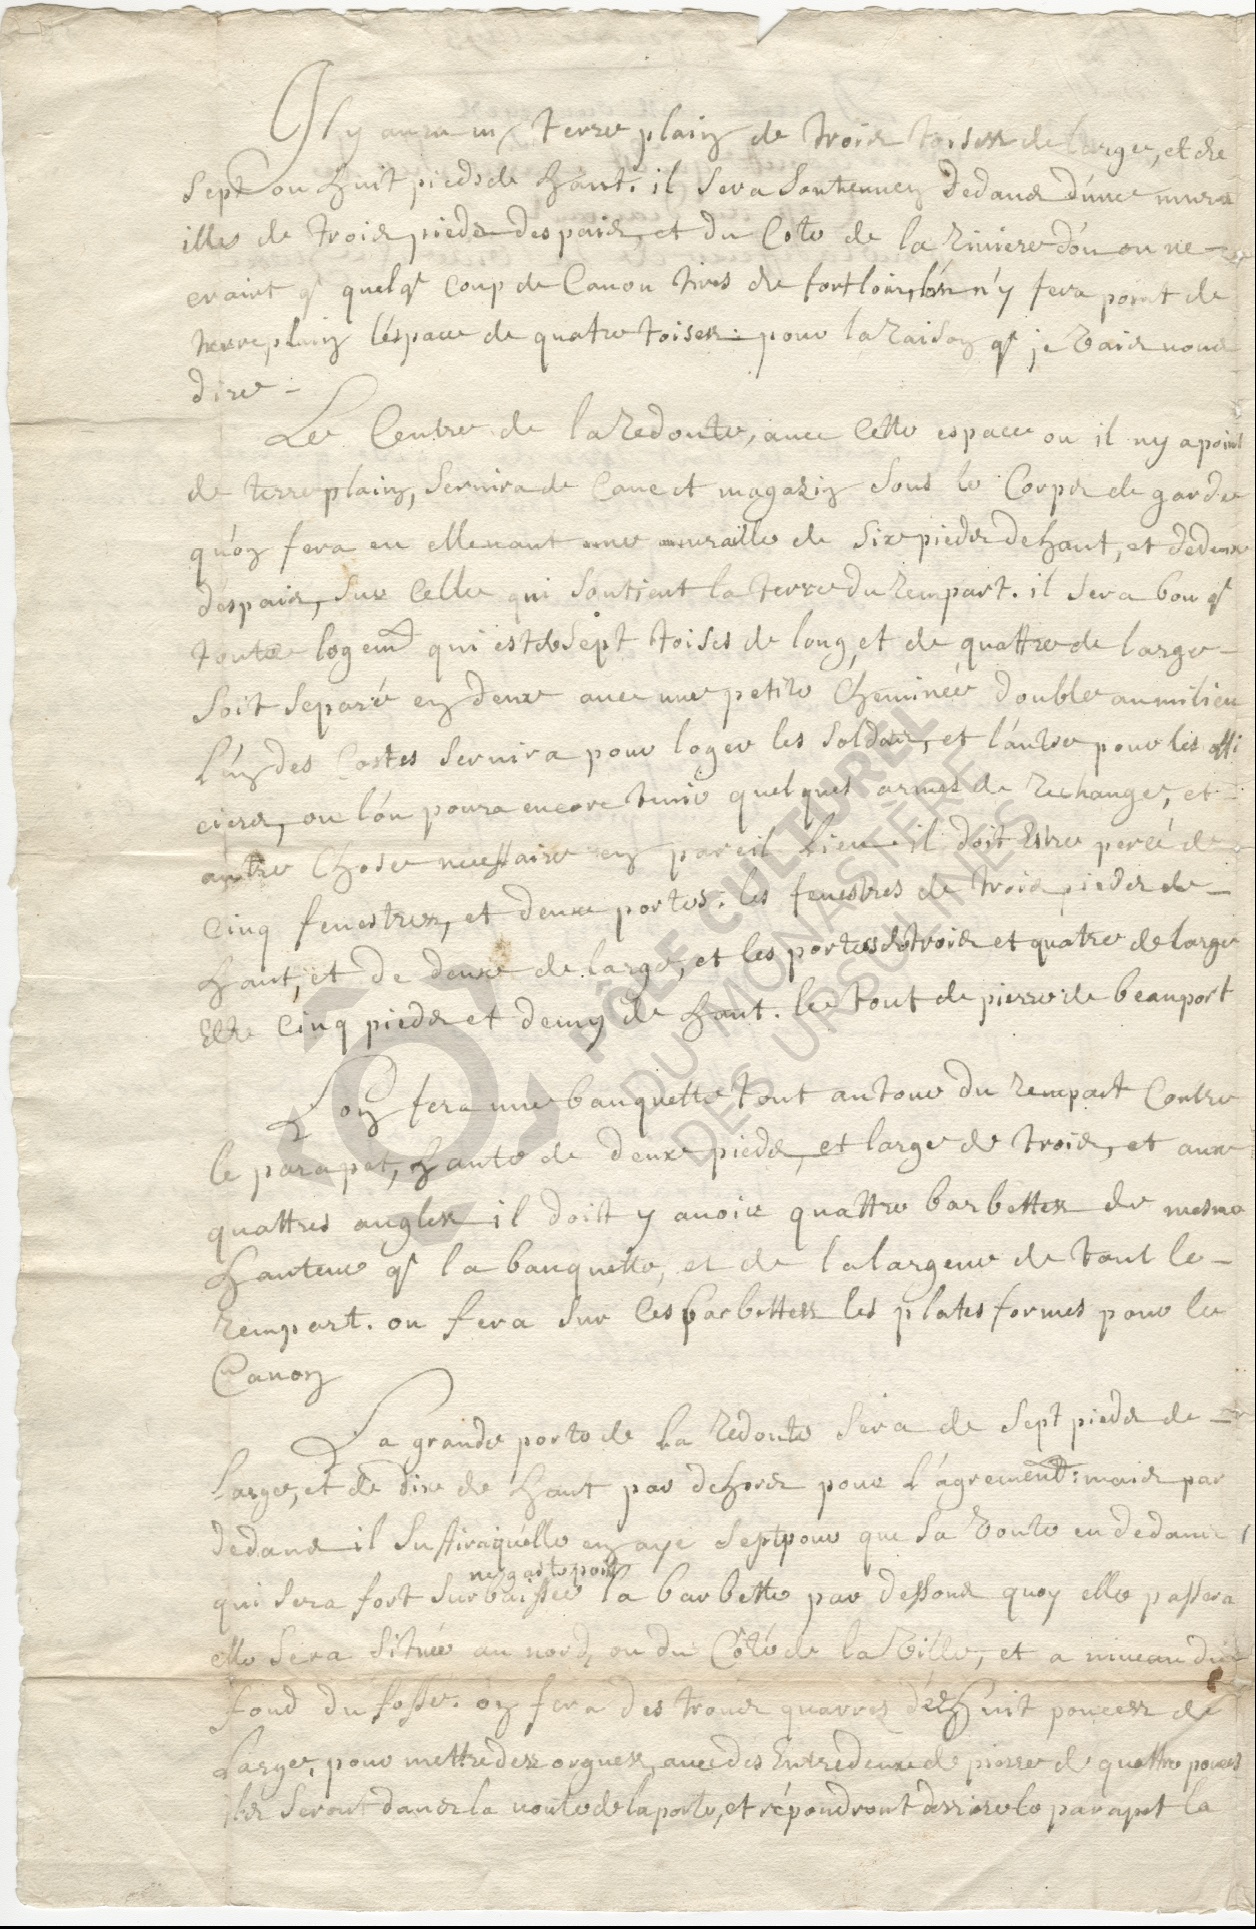 Il y aura un terre plain de trois toises de large, et de
sept ou huit pieds de haut. il sera soutenu dedans d'une mura
illes de trois pieds despais, et du Coté de la Riviere d'ou on ne
craint q̃ quelq̃ coup de Canon tirés de fort loin, l'on n'y fera point de
terreplain l'espace de quatre toises: pour la Raison q̃ je vais vous
dire -
Le Centre de la Redoute, avec cette espace ou il ny a point
de terreplain, servira de Cave et magazin sous le Corps de garde
qu'on fera en ellevant une muraille de Six pieds de haut, et de deux
despais, sur celle qui soutient la terre du rempart. il sera bon q̃
tout ce logemt qui est de Sept toises de long, et de quattre de large
soit separé en deux avec une petite Cheminée double au milieu
l'un des Costes servira pour loger les soldats, et l'autre pour les offi
ciers, ou l'on poura encore tenir quelques armes de rechange, et
autre Chose necessaire en pareil Lieu. il doit Estre percé de
cinq fenestres, et deux portes. les fenestres de trois pieds de
haut, et de deux de large, et les portes de trois et quatre de large
et de Cinq pieds et demy de haut. le tout de pierre de beauport
L'on fera une banquette tout autour du rempart Contre
le parapet, haute de deux pieds, et large de trois, et aux
quattres angles il doit y avoir quattre barbettes de mesme
hauteur q̃ la banquette, et de la largeur de tout le
rempart. on fera sur ces barbettes les platesformes pour le
Canon
La grande porte de La Redoute sera de sept pieds de
Large, et de dix de haut par dehors pour L'agrement: mais par
dedans il suffira qu'elle en aye sept pour que sa voute en dedans
ne gaste point
qui sera fort surbaissée la barbette par dessous quoy elle passera
elle sera située au nord, ou du Côté de la Ville, et a niveau du
fond du fossé. on fera des trous quarrez de huit pouces de
Large, pour mettre des orgues, avec des Entredeux de pierre de quattre pouces
ils seront dans la voute de la porte, et répondront derriere le parapet la